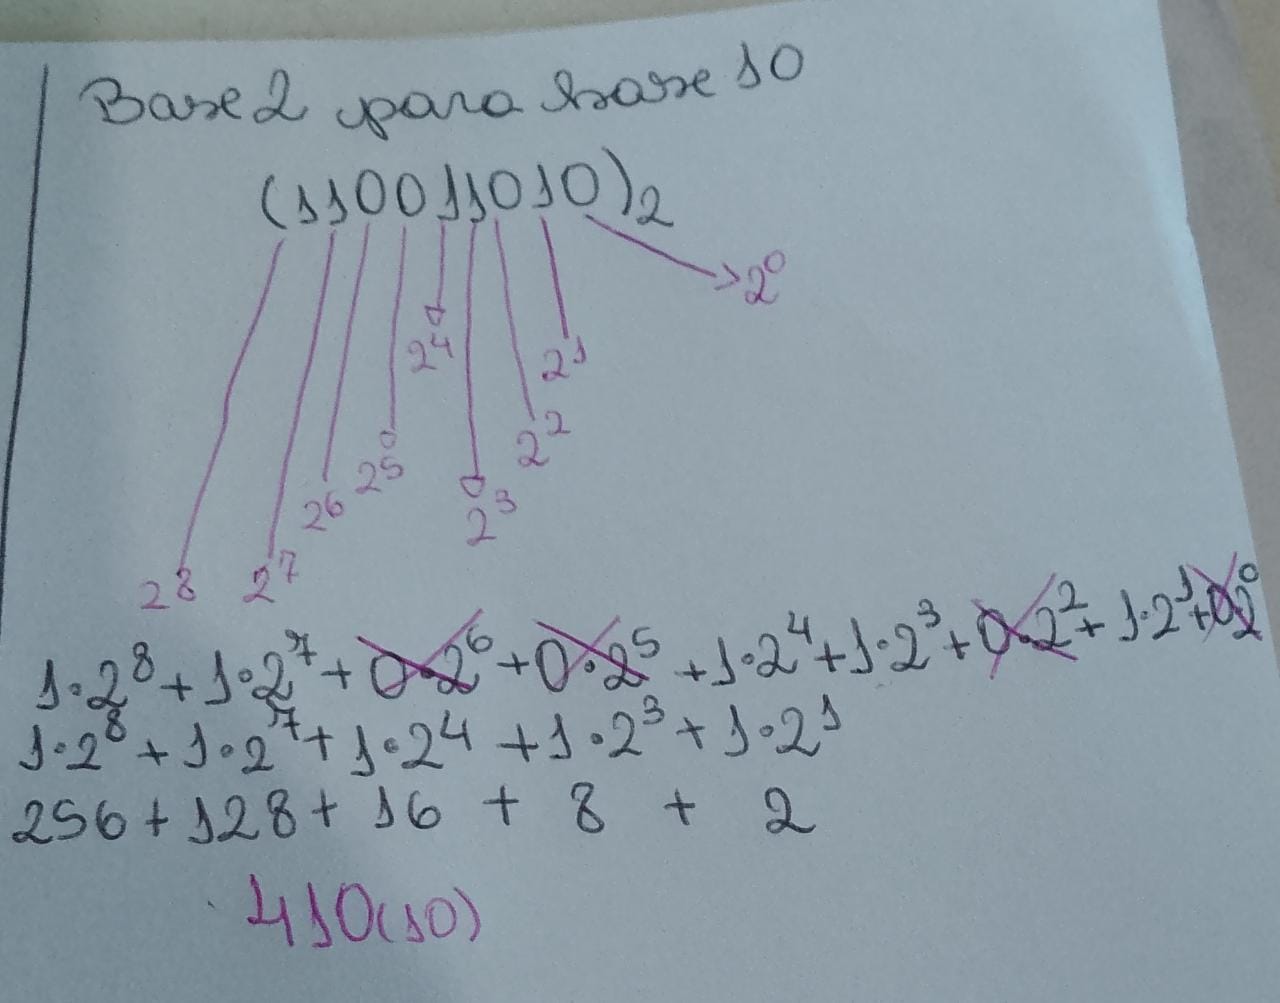 Base 2 para base 10
(110011010)₂
2⁰
2⁴
2¹
2²
2⁵
2⁶
2³
2⁸ 2⁷
1·2⁸ + 1·2⁷ + 0·2⁶ + 0·2⁵ + 1·2⁴ + 1·2³ + 0·2² + 1·2¹ + 0·2⁰
1·2⁸ + 1·2⁷ + 1·2⁴ + 1·2³ + 1·2¹
256 + 128 + 16 + 8 + 2
410(10)